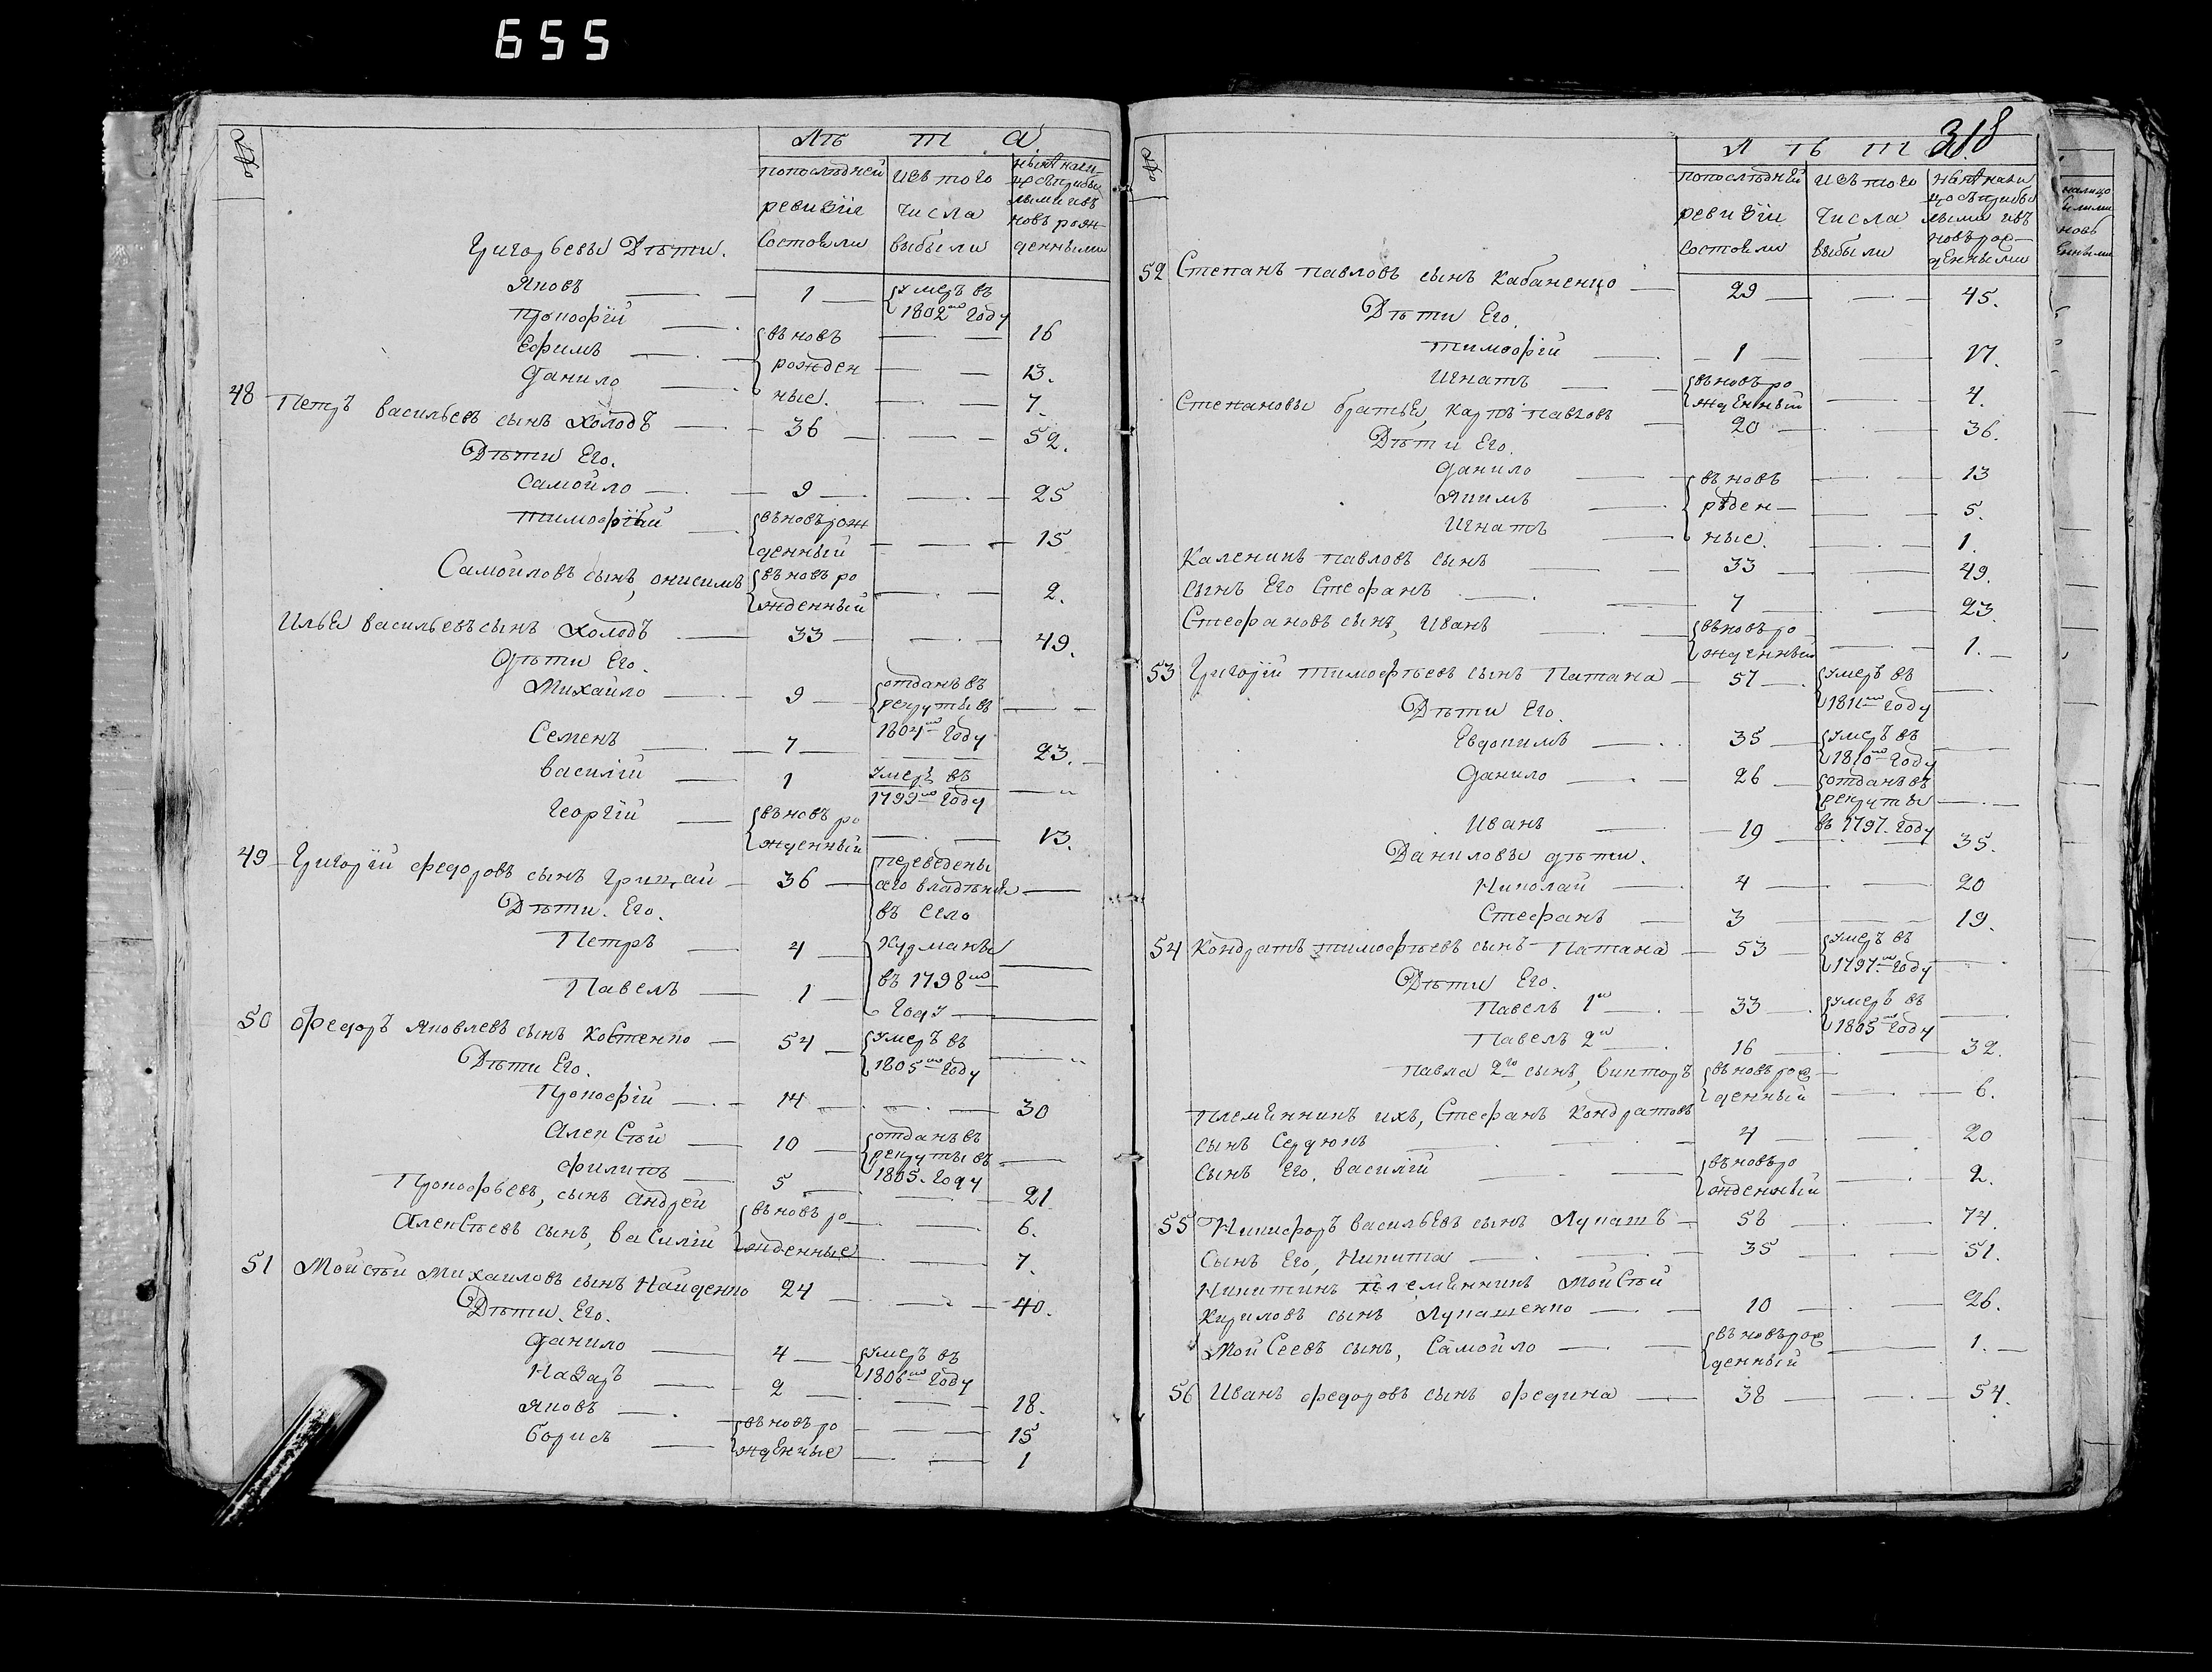 655
№
Лѣта
попослѣдней ревизiи состояли
изъ того числа выбыли
нынѣ налицо съ прибылыми и въновь рожденными
Григорьевы Дѣти.
Яковъ — 1 — умеръ въ 1802мъ году
Прокофiй — въновь — 16
Ефимъ — рожден — 13.
Данило — ные. — 7.
48 Петръ васильевъ сынъ Холодъ — 36 — 52.
Дѣти Его.
Самойло — 9 — 25
тимофѣй — въновь рожденный — 15
Самойловъ сынъ, онисимъ въновь рожденный — 2.
Илья васильевъ сынъ Холодъ — 33 — 49.
дѣти Его.
Михайло — 9 — отданъ въ рекруты въ 1804мъ году —
Семенъ — 7 — 23.
василiй — 1 умеръ въ 1799мъ году —
георгiй — въновь рожденный — 13.
49 Григорiй федоровъ сынъ Грицай — 36 — переведены —
Дѣти. Его.
въ село
Петръ — 4 —
Павелъ — 1 — въ 1798мъ году —
50 федоръ яковлевъ сынъ Костенко — 54 — умеръ въ 1805мъ году —
Дѣти Его.
Прокофiй — 14 — 30
Алексѣй — 10 — отданъ въ рекруты въ 1805. году —
филипъ — 5 — 21
Прокофьевъ, сынъ Андрей въновь ро — 6.
Алексѣевъ сынъ, василiй жденные — 7.
51 Мойсѣй михаиловъ сынъ Найденко 24 — 40.
Дѣти. Его.
Данило — 4 — умеръ въ 1806мъ году
Назаръ — 2 — 18.
яковъ — въновь ро — 15
борисъ — жденные — 1
318
№
Лѣт
попослѣдней ревизiи состояли
изъ того числа выбыли
нынѣ налицо съ прибылыми и въновь рожденными
52 Степанъ павловъ сынъ Кабаненко — 29 — 45.
Дѣти Его.
тимофiй — 1 — 17.
Игнатъ — въновь рожденный — 4.
Степановы братья, карпъ павловъ — 20 — 36.
Дѣти Его.
данило — въновь — 13
Якимъ — рожден — 5.
Игнатъ — ные. — 1.
Каленикъ павловъ сынъ — 33 — 49.
сынъ Его Стефанъ — 7 — 23.
Стефановъ сынъ, Иванъ — въновь рожденный — 1.
53 Григорiй тимофѣевъ сынъ Патана — 57 — умеръ въ 1811мъ году —
Дѣти Его.
Евдокимъ — 35 — умеръ въ 1810мъ году —
данило — 26 — отданъ въ рекруты въ 1797. году —
Иванъ — 19 — 35.
Даниловы дѣти.
Николай — 4 — 20
Стефанъ — 3 — 19.
54 Кондратъ тимофѣевъ сынъ Патана — 53 — умеръ въ 1797.мъ году —
Дѣти Его.
Павелъ 1й — 33 — умеръ въ 1805мъ году —
Павелъ 2й — 16 — 32.
Павла 2го сынъ, викторъ въновь рожденный — 6.
Племянникъ ихъ, Стефанъ Кондратовъ
сынъ Сердюкъ — 4 — 20
Сынъ Его, василiй — въновь рожденный — 2.
55 Никифоръ васильевъ сынъ Лукашъ — 58 — 74.
Сынъ Его, Никита — 35 — 51.
Никитинъ племянникъ Мойсѣй
Кириловъ сынъ Лукашенко — 10 — 26.
Мойсеевъ сынъ, Самойло — въновь рожденный — 1.
56 Иванъ федоровъ сынъ федина — 38 — 54.